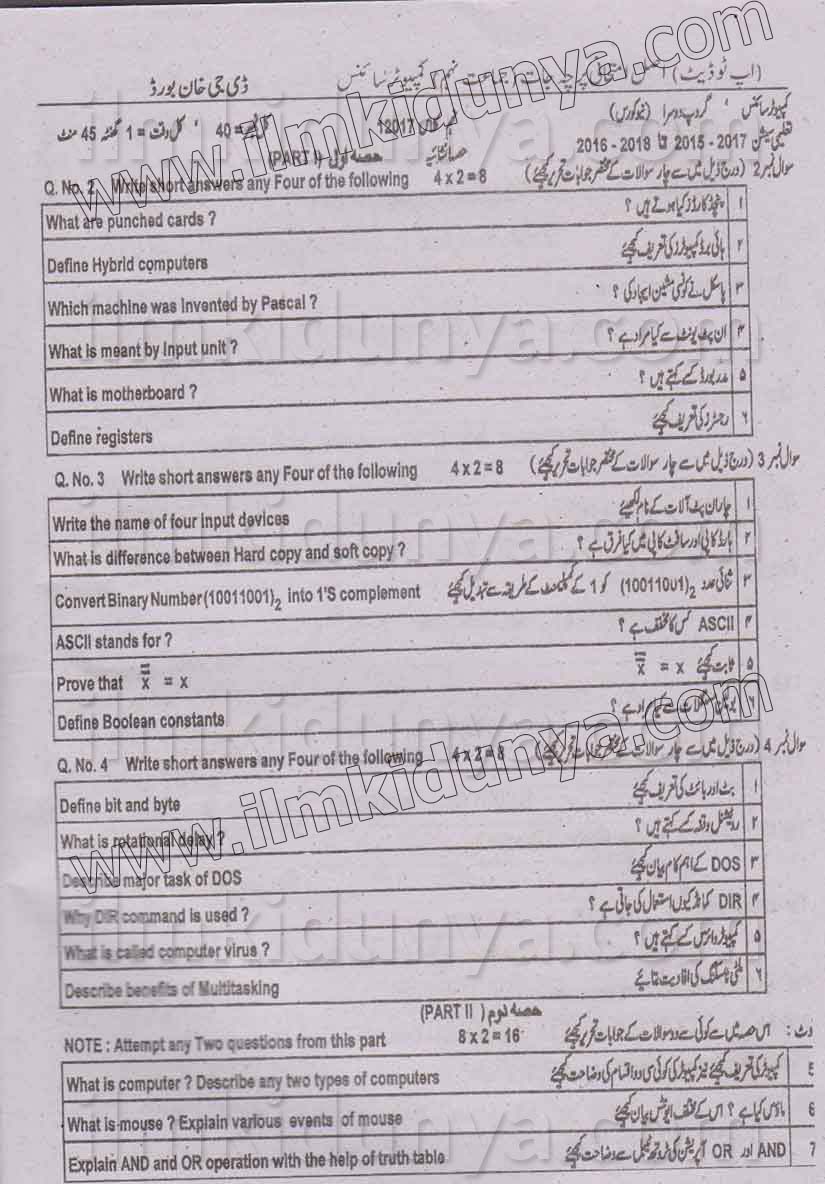 (اپ ٹو ڈیٹ) پرچہ جات جماعت نہم کمپیوٹر سائنس ڈی جی خان بورڈ
کمپیوٹر سائنس ' گروپ دوسرا (نیو کورس) 12017 = 40 ' کل وقت = 1 گھنٹہ 45 منٹ
تعلیمی سیشن 2017 - 2015 تا 2018 - 2016 حصہ انشائیہ حصہ اول (PART I)
Q. No. 2 Write short answers any Four of the following 4 x 2 = 8 سوال نمبر 2 (درج ذیل میں سے چار سوالات کے مختصر جوابات تحریر کیجئے)
What are punched cards ? پنچڈ کارڈز کیا ہوتے ہیں ؟ ۱
Define Hybrid computers ہائی برڈ کمپیوٹرز کی تعریف کیجئے ۲
Which machine was invented by Pascal ? پاسکل نے کونسی مشین ایجاد کی ؟ ۳
What is meant by Input unit ? ان پٹ یونٹ سے کیا مراد ہے ؟ ۴
What is motherboard ? مدر بورڈ کسے کہتے ہیں ؟ ۵
Define registers رجسٹرز کی تعریف کیجئے ۶
Q. No. 3 Write short answers any Four of the following 4 x 2 = 8 سوال نمبر 3 (درج ذیل میں سے چار سوالات کے مختصر جوابات تحریر کیجئے)
Write the name of four Input devices چار ان پٹ آلات کے نام لکھیئے ۱
What is difference between Hard copy and soft copy ? ہارڈ کاپی اور سافٹ کاپی میں کیا فرق ہے ؟ ۲
Convert Binary Number (10011001)₂ into 1'S complement ثنائی عدد (10011001)₂ کو 1 کے کمپلیمنٹ کے طریقہ سے تبدیل کیجئے ۳
ASCII stands for ? ASCII کس کا مخفف ہے ؟ ۴
Prove that x̿ = x ثابت کیجئے x̿ = x ۵
Define Boolean constants سے کیا مراد ہے ؟ ۶
Q. No. 4 Write short answers any Four of the following 4 x 2 = 8 سوال نمبر 4 (درج ذیل میں سے چار سوالات کے مختصر جوابات تحریر کیجئے)
Define bit and byte بٹ اور بائٹ کی تعریف کیجئے ۱
What is rotational delay ? روٹیشنل وقفہ کسے کہتے ہیں ؟ ۲
Describe major task of DOS DOS کے اہم کام بیان کیجئے ۳
Why DIR command is used ? DIR کمانڈ کیوں استعمال کی جاتی ہے ؟ ۴
What is called computer virus ? کمپیوٹر وائرس کسے کہتے ہیں ؟ ۵
Describe benefits of Multitasking ملٹی ٹاسکنگ کی افادیت بتائیے ۶
حصہ دوم (PART II)
NOTE : Attempt any Two questions from this part 8 x 2 = 16 نوٹ : اس حصہ میں سے کوئی سے دو سوالات کے جوابات تحریر کیجئے
What is computer ? Describe any two types of computers کمپیوٹر کی تعریف کیجئے نیز کمپیوٹر کی کوئی سی دو اقسام کی وضاحت کیجئے 5
What is mouse ? Explain various events of mouse ماؤس کیا ہے ؟ اس کے مختلف ایونٹس بیان کیجئے 6
Explain AND and OR operation with the help of truth table AND اور OR آپریشن کی ٹروتھ ٹیبل سے وضاحت کیجئے 7
www.ilmkidunya.com
www.ilmkidunya.com
ilmkidunya.com
ilmkidunya.com
ilmkidunya.com
ilmkidunya.com
ilmkidunya.com
ilmkidunya.com